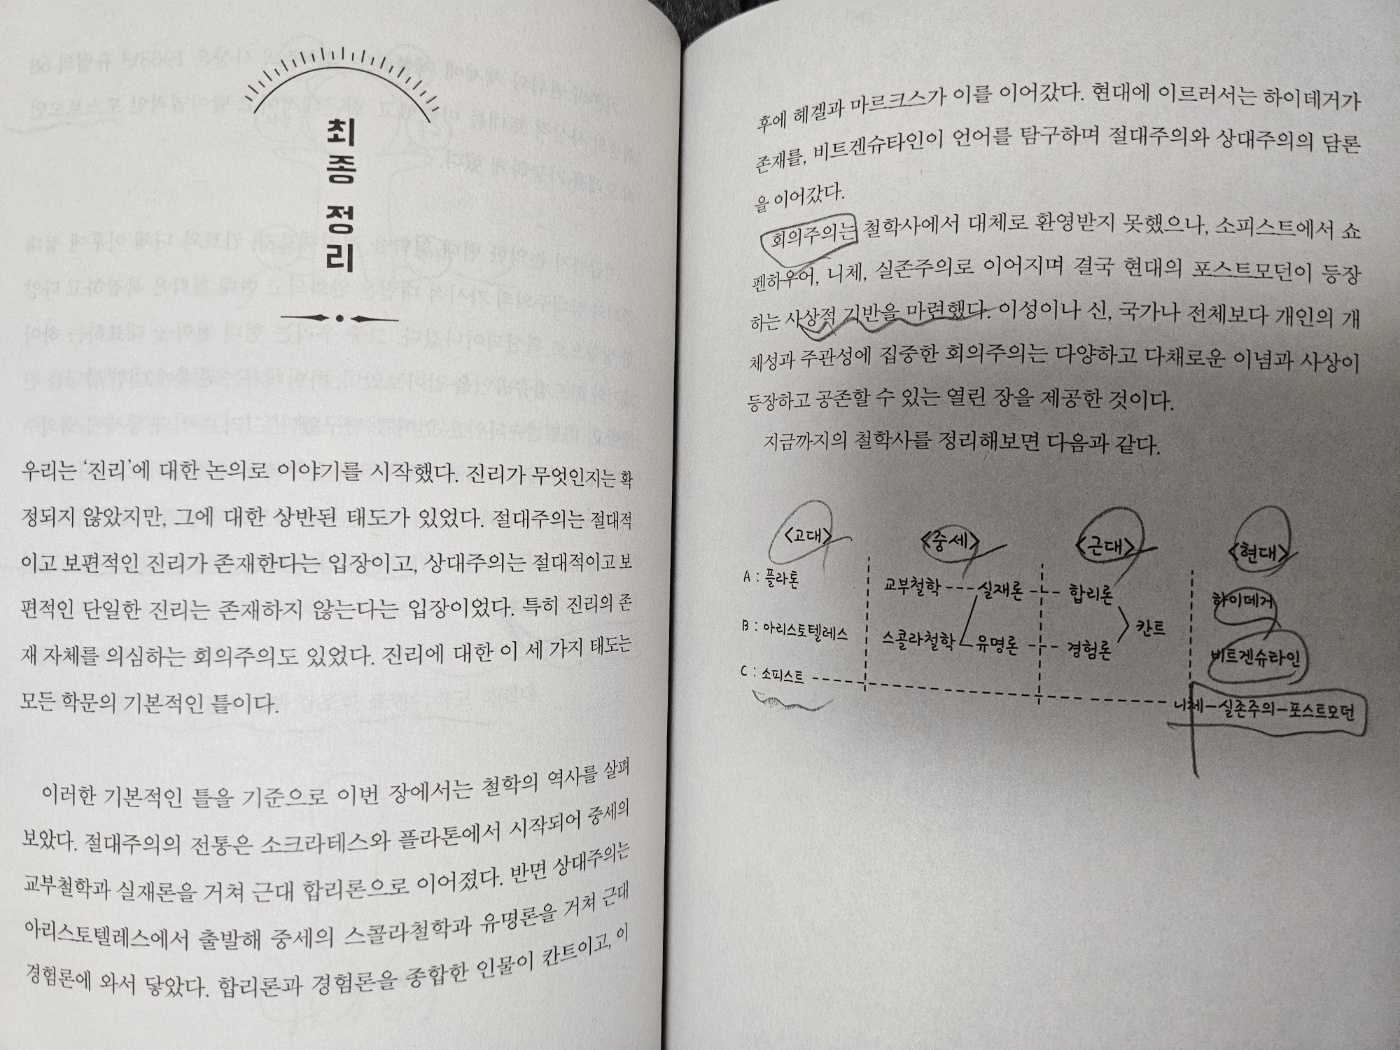 최종 정리
우리는 ‘진리’에 대한 논의로 이야기를 시작했다. 진리가 무엇인지는 확
정되지 않았지만, 그에 대한 상반된 태도가 있었다. 절대주의는 절대적
이고 보편적인 진리가 존재한다는 입장이고, 상대주의는 절대적이고 보
편적인 단일한 진리는 존재하지 않는다는 입장이었다. 특히 진리의 존
재 자체를 의심하는 회의주의도 있었다. 진리에 대한 이 세 가지 태도는
모든 학문의 기본적인 틀이다.
이러한 기본적인 틀을 기준으로 이번 장에서는 철학의 역사를 살펴
보았다. 절대주의의 전통은 소크라테스와 플라톤에서 시작되어 중세의
교부철학과 실재론을 거쳐 근대 합리론으로 이어졌다. 반면 상대주의는
아리스토텔레스에서 출발해 중세의 스콜라철학과 유명론을 거쳐 근대
경험론에 와서 닿았다. 합리론과 경험론을 종합한 인물이 칸트이고, 이
후에 헤겔과 마르크스가 이를 이어갔다. 현대에 이르러서는 하이데거가
존재를, 비트겐슈타인이 언어를 탐구하며 절대주의와 상대주의의 담론
을 이어갔다.
회의주의는 철학사에서 대체로 환영받지 못했으나, 소피스트에서 쇼
펜하우어, 니체, 실존주의로 이어지며 결국 현대의 포스트모던이 등장
하는 사상적 기반을 마련했다. 이성이나 신, 국가나 전체보다 개인의 개
체성과 주관성에 집중한 회의주의는 다양하고 다채로운 이념과 사상이
등장하고 공존할 수 있는 열린 장을 제공한 것이다.
지금까지의 철학사를 정리해보면 다음과 같다.
<고대> <중세> <근대> <현대>
A : 플라톤 교부철학 --- 실재론 --- 합리론 하이데거
B : 아리스토텔레스 스콜라철학 유명론 --- 경험론 칸트 비트겐슈타인
C : 소피스트 --- 니체 – 실존주의 – 포스트모던